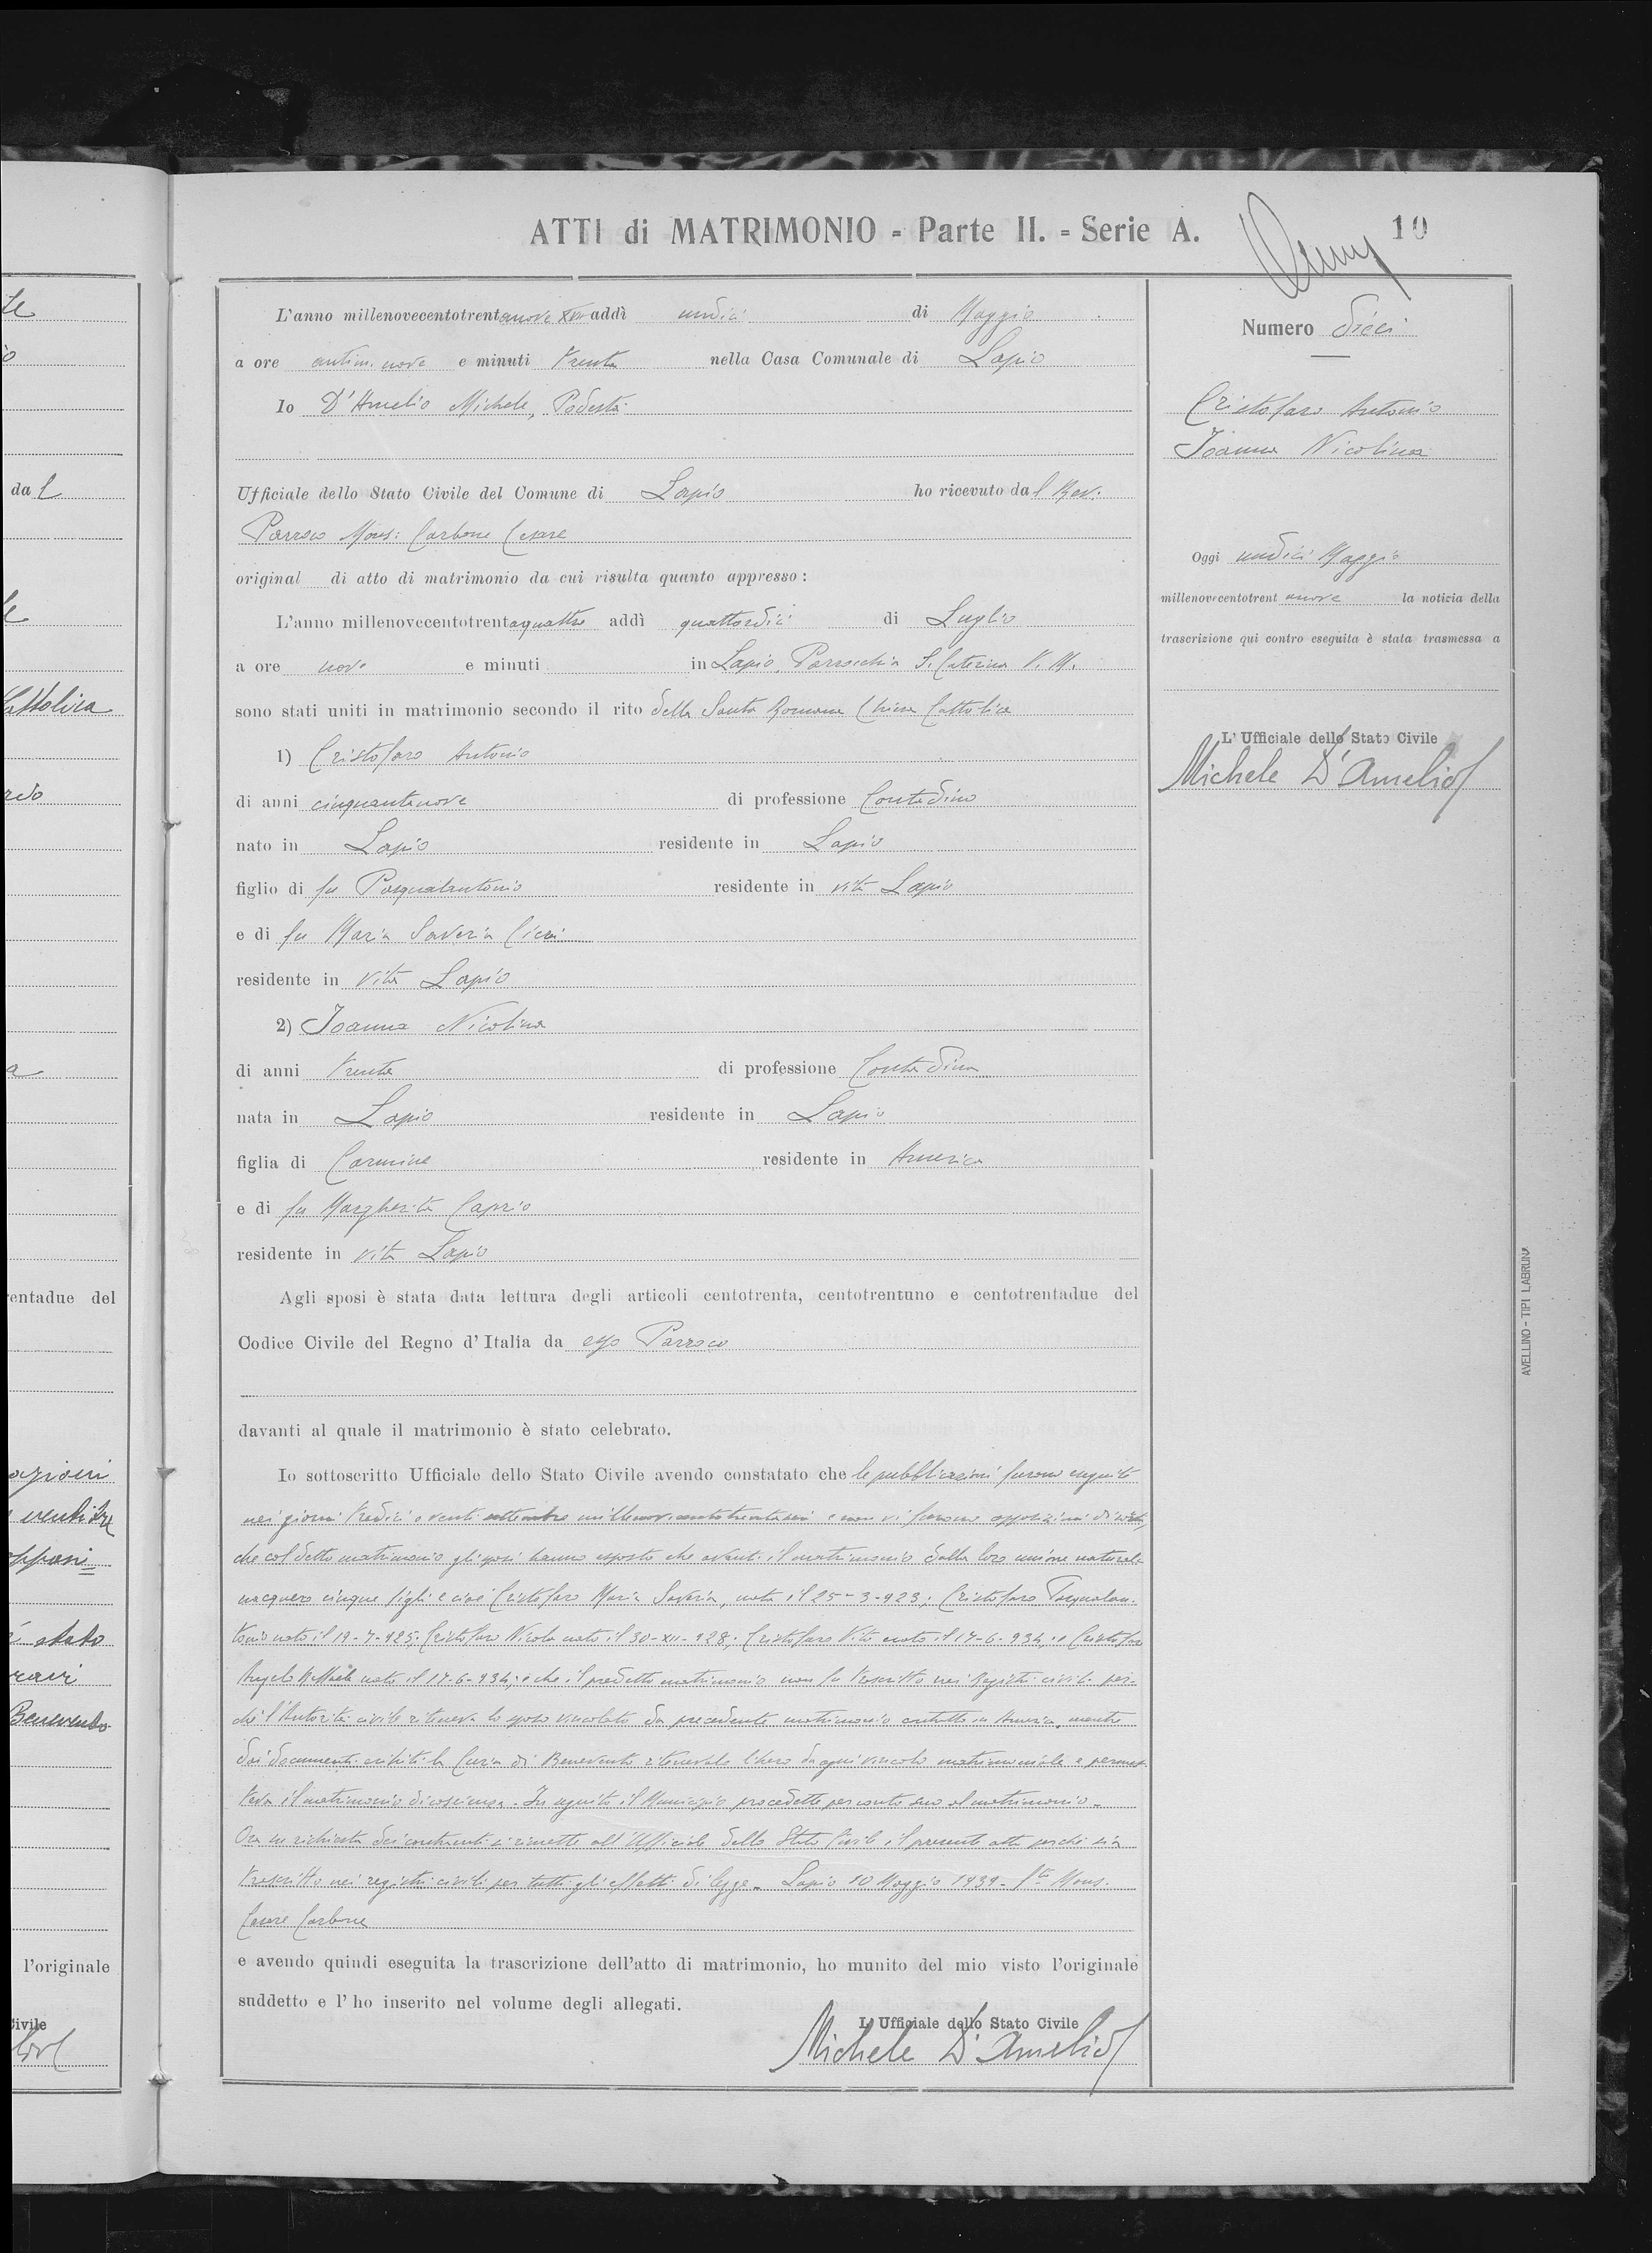 ATTI di MATRIMONIO - Parte II. - Serie A.
10
L'anno millenovecentotrentanove XVII addì undici di Maggio
a ore antim. nove e minuti trenta nella Casa Comunale di Lapio
Io D'Amelio Michele, Podestà
Ufficiale dello Stato Civile del Comune di Lapio ho ricevuto dal Rev.
Parroco Mons: Carbone Cesare
original di atto di matrimonio da cui risulta quanto appresso:
L'anno millenovecentotrentaquattro addì quattordici di Luglio
a ore nove e minuti in Lapio, Parrocchia S. Caterina V. M.
sono stati uniti in matrimonio secondo il rito della Santa Romana Chiesa Cattolica
1) Cristofaro Antonio
di anni cinquantanove di professione Contadino
nato in Lapio residente in Lapio
figlio di fu Pasqualantonio residente in vita Lapio
e di fu Maria Saveria
residente in vita Lapio
2) Ioanna Nicolina
di anni trenta di professione Contadina
nata in Lapio residente in Lapio
figlia di Carmine residente in America
e di fu Margherita Caprio
residente in vita Lapio
Agli sposi è stata data lettura degli articoli centotrenta, centotrentuno e centotrentadue del
Codice Civile del Regno d'Italia da esso Parroco
davanti al quale il matrimonio è stato celebrato.
Io sottoscritto Ufficiale dello Stato Civile avendo constatato che le pubblicazioni furono eseguite
nei giorni tredici e venti settembre e non vi furono opposizioni di sorta,
che col detto matrimonio gli sposi hanno esposto che avanti il matrimonio dalla loro unione naturale
nacquero cinque figli e cioè Cristofaro Maria Saveria, nata il 25-3-923; Cristofaro Pasqualan-
tonio nato il 19-7-925; Cristofaro Nicola nato il 30-XII-928; Cristofaro Vito nato il 17-6-934; e Cristofaro
Angelo Raffaele nato il 17-6-934; e che il predetto matrimonio non fu trascritto nei Registri civili per-
chè l'Autorità civile riteneva lo sposo vincolato da precedente matrimonio contratto in America, mentre
dai documenti esibiti la Curia di Benevento ritenevalo libero da ogni vincolo matrimoniale e permet-
teva il matrimonio di coscienza. In seguito il Municipio procedette per conto suo al matrimonio.
Ora su richiesta dei contraenti si rimette all'Ufficiale dello Stato Civile il presente atto perchè sia
trascritto nei registri civili per tutti gli effetti di legge. Lapio 10 Maggio 1939. f.to Mons.
Cesare Carbone
e avendo quindi eseguita la trascrizione dell'atto di matrimonio, ho munito del mio visto l'originale
suddetto e l'ho inserito nel volume degli allegati.
L'Ufficiale dello Stato Civile
Michele D'Amelio
Numero dieci
Cristofaro Antonio
Ioanna Nicolina
Oggi undici Maggio
millenovecentotrentanove la notizia della
trascrizione qui contro eseguita è stata trasmessa a
L'Ufficiale dello Stato Civile
Michele D'Amelio
AVELLINO - TIPI LABRUNA
dal
Cattolica
a
entadue del
ventitre
è stato
Benevento
l'originale
Civile